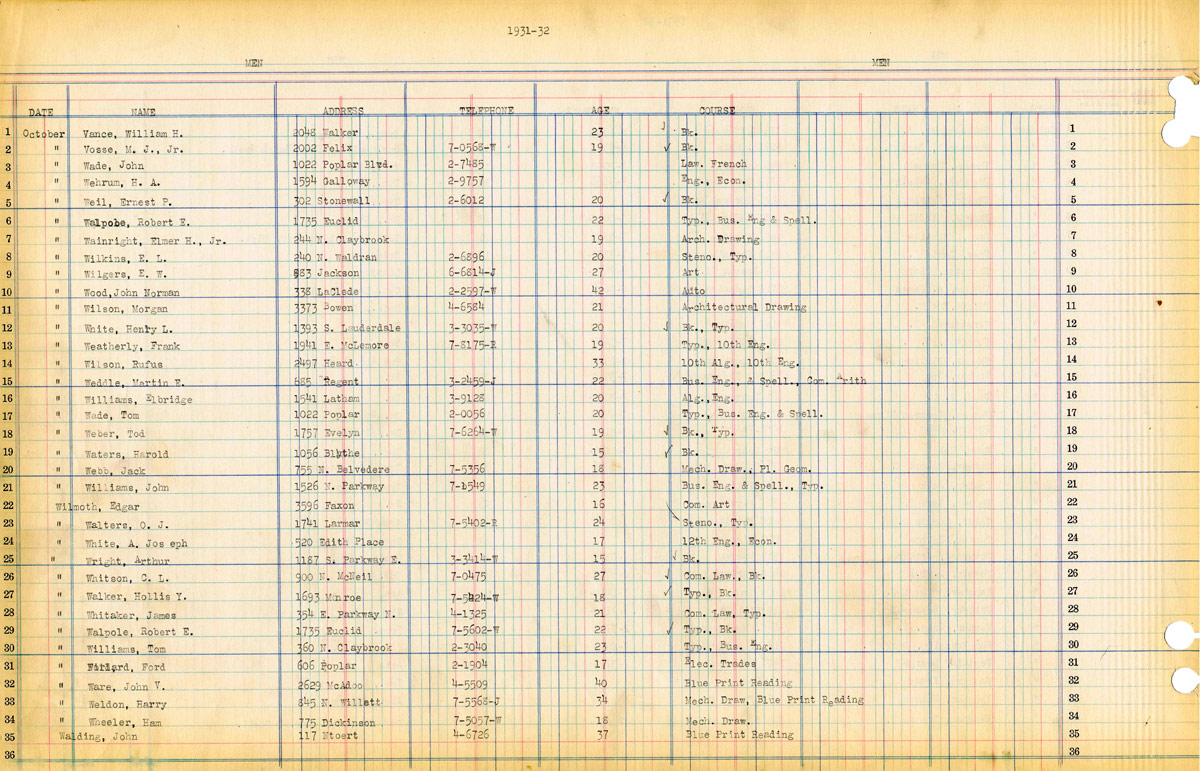 1931-32
MEN MEN
DATE NAME ADDRESS TELEPHONE AGE COURSE
1 October Vance, William H. 2048 Walker 23 ✓ Bk. 1
2 " Vosse, M. J., Jr. 2002 Felix 7-0568-W 19 ✓ Bk. 2
3 " Wade, John 1022 Poplar Blvd. 2-7485 Law. French 3
4 " Wehrum, H. A. 1594 Galloway 2-9757 Eng., Econ. 4
5 " Weil, Ernest P. 302 Stonewall 2-6012 20 ✓ Bk. 5
6 " Walpobe, Robert E. 1735 Euclid 22 Typ., Bus. Eng & Spell. 6
7 " Wainright, Elmer H., Jr. 244 N. Claybrook 19 Arch. Drawing 7
8 " Wilkins, E. L. 240 N. Waldran 2-6896 20 Steno., Typ. 8
9 " Wilgers, E. W. 583 Jackson 6-6814-J 27 Art 9
10 " Wood,John Norman 338 LaClede 2-2597-W 42 Auto 10
11 " Wilson, Morgan 3373 Bowen 4-6584 21 Architectural Drawing 11
12 " White, Henry L. 1393 S. Lauderdale 3-3035-W 20 ✓ Bk., Typ. 12
13 " Weatherly, Frank 1941 E. McLemore 7-8175-R 19 Typ., 10th Eng. 13
14 " Wilson, Rufus 2497 Heard 33 10th Alg., 10th Eng. 14
15 " Weddle, Martin E. 685 Regent 3-2459-J 22 Bus. Eng., & Spell., Com. Arith 15
16 " Williams, Elbridge 1541 Latham 3-9128 20 Alg.,Eng. 16
17 " Wade, Tom 1022 Poplar 2-0056 20 Typ., Bus. Eng. & Spell. 17
18 " Weber, Tod 1757 Evelyn 7-6264-W 19 ✓ Bk., Typ. 18
19 " Waters, Harold 1056 Blythe 15 ✓ Bk. 19
20 " Webb, Jack 755 N. Belvedere 7-5356 18 Mech. Draw., Pl. Geom. 20
21 " Williams, John 1526 N. Parkway 7-1549 23 Bus. Eng. & Spell., Typ. 21
22 Wilmoth, Edgar 3596 Faxon 16 Com. Art 22
23 " Walters, O. J. 1741 Larmar 7-5402-R 24 Steno., Typ. 23
24 " White, A. Jos eph 520 Edith Place 17 12th Eng., Econ. 24
25 " Wright, Arthur 1187 S. Parkway E. 3-3414-W 15 ✓ Bk. 25
26 " Whitson, C. L. 900 N. McNeil 7-0475 27 ✓ Com. Law., Bk. 26
27 " Walker, Hollis Y. 1693 Monroe 7-5424-W 18 ✓ Typ., Bk. 27
28 " Whitaker, James 354 E. Parkway N. 4-1325 21 Com. Law, Typ. 28
29 " Walpole, Robert E. 1735 Euclid 7-5602-W 22 ✓ Typ., Bk. 29
30 " Williams, Tom 360 N. Claybrook 2-3040 23 Typ., Bus. Eng. 30
31 " Ford 606 Poplar 2-1904 17 Elec. Trades 31
32 " Ware, John V. 2629 McAdoo 4-5509 40 Blue Print Reading 32
33 " Weldon, Harry 845 N. Willett 7-5568-J 34 Mech. Draw, Blue Print Reading 33
34 " Wheeler, Ham 775 Dickinson 7-5057-W 18 Mech. Draw. 34
35 Walding, John 117 Ntoert 4-6726 37 Blue Print Reading 35
36 36